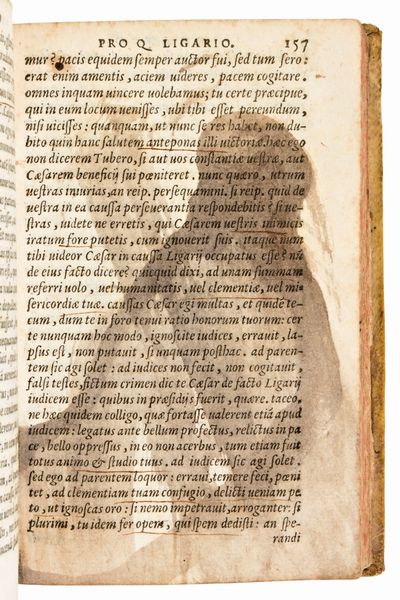 PRO Q. LIGARIO. 157
mur? pacis equidem semper auctor fui, sed tum sero:
erat enim amentis, aciem uideres, pacem cogitare.
omnes inquam uincere uolebamus; tu certe præcipue,
qui in eum locum uenisses, ubi tibi esset pereundum,
nisi uicisses: quanquam, ut nunc se res habet, non du-
bito quin hanc salutem anteponas illi uictoriæ. hæc ego
non dicerem Tubero, si aut uos constantiæ uestræ, aut
Cæsarem beneficij sui pœniteret. nunc quæro, utrum
uestras iniurias, an reip. persequamini. si reip. quid de
uestra in ea caussa perseuerantia respondebitis? si ue-
stras, uidete ne erretis, qui Cæsarem uestris inimicis
iratum fore putetis, cum ignouerit suis. itaque num
tibi uideor Cæsar in caussa Ligarij occupatus esse? nū
de eius facto dicere? quicquid dixi, ad unam summam
referri uolo, uel humanitatis, uel clementiæ, uel mi-
sericordiæ tuæ. caussas Cæsar egi multas, et quidē te-
cum, dum te in foro tenuit ratio honorum tuorum: cer
te nunquam hoc modo, ignoscite iudices, errauit, la-
psus est, non putauit, si unquam posthac. ad paren-
tem sic agi solet: ad iudices non fecit, non cogitauit,
falsi testes, fictum crimen. dic te Cæsar de facto Ligarij
iudicem esse: quibus in præsidijs fuerit, quære. taceo.
ne hæc quidem colligo, quæ fortasse ualerent etiā apud
iudicem: legatus ante bellum profectus, relictus in pa
ce, bello oppressus, in eo non acerbus, tum etiam fuit
totus animo & studio tuus. ad iudicem sic agi solet.
sed ego ad parentem loquor: erraui, temere feci, pœni
tet, ad clementiam tuam confugio, delicti ueniam pe
to, ut ignoscas oro: si nemo impetrauit, arroganter: si
plurimi, tu idem fer opem, qui spem dedisti: an spe-
randi